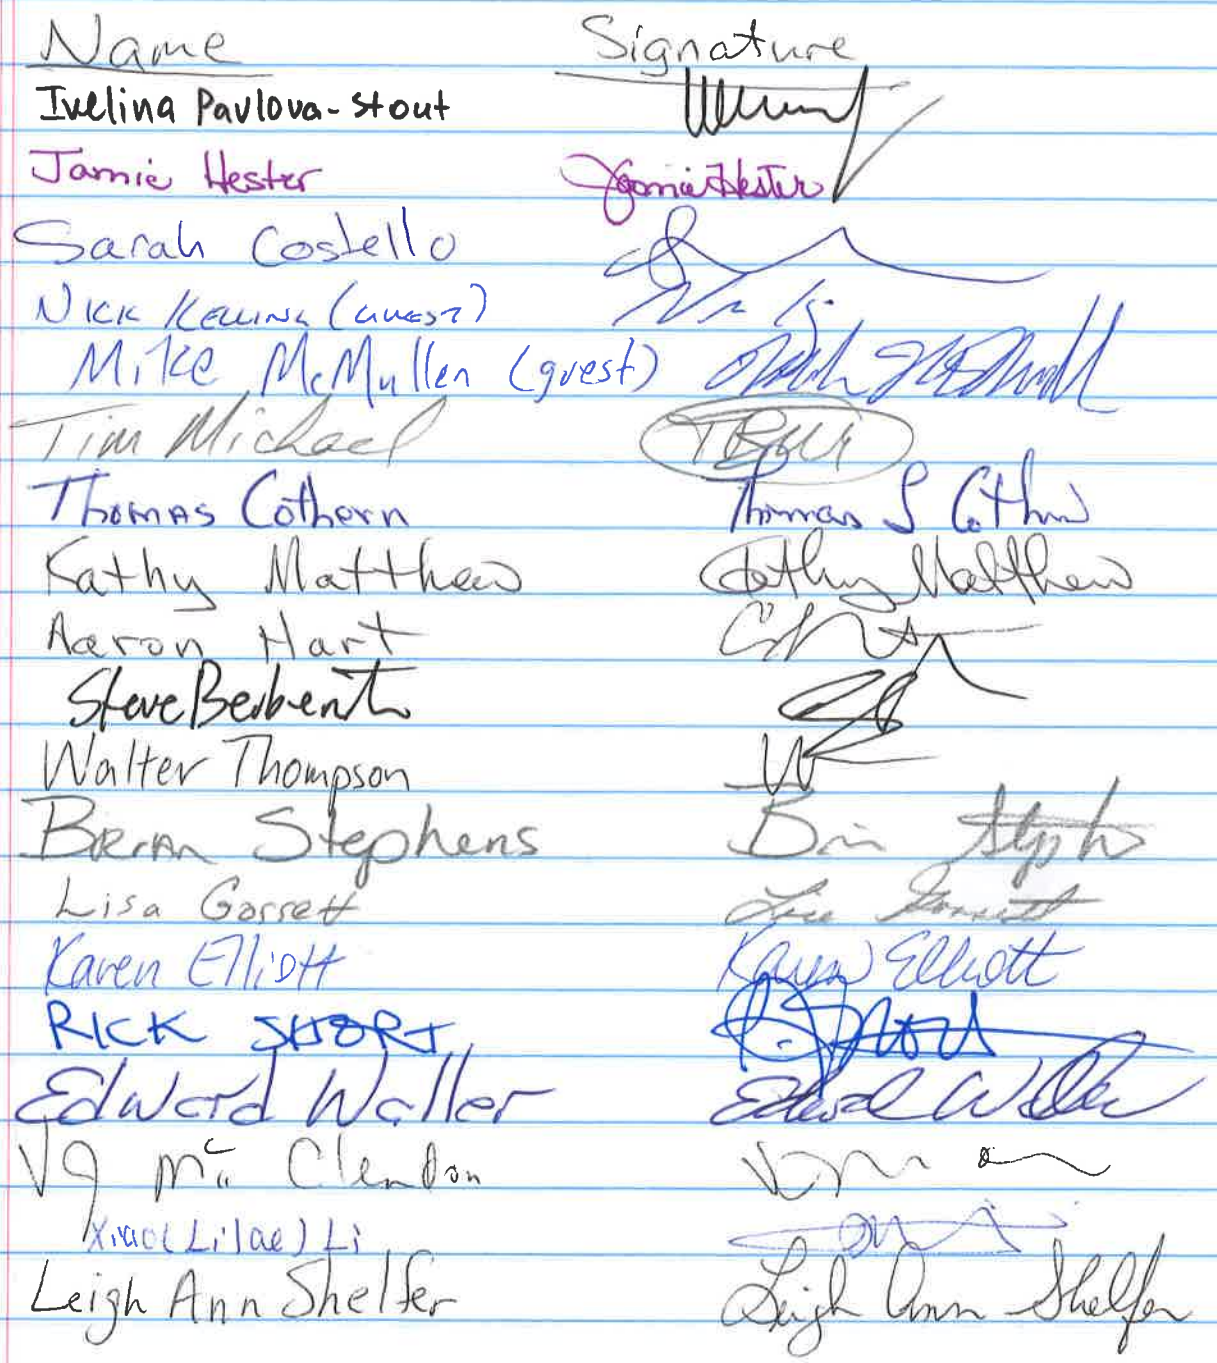 Name Signature
Ivelina Pavlova-Stout
Jamie Hester Jamie Hester
Sarah Costello
Nick Kelling (guest)
Mike McMullen (guest)
Tim Michael
Thomas Cothern Thomas S Cothern
Kathy Matthew Kathy Matthew
Aaron Hart
Steve
Walter Thompson
Brian Stephens
Lisa Gossett Lisa Gossett
Karen Elliott Karen Elliott
RICK SHORT
Edward Waller Edward Waller
VJ Mc Clendon
Xiao (Lilac) Li
Leigh Ann Shelfer Leigh Ann Shelfer